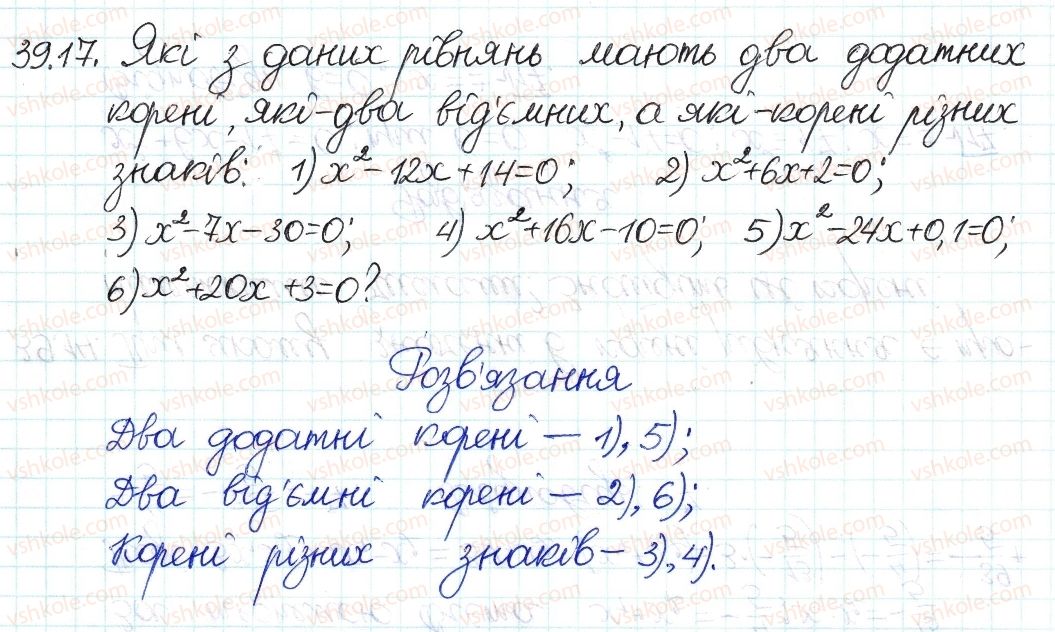 39.17. Які з даних рівнянь мають два додатних
корені, які-два від'ємних, а які-корені різних
знаків: 1) x²-12x+14=0; 2) x²+6x+2=0;
3) x²-7x-30=0; 4) x²+16x-10=0; 5) x²-24x+0,1=0;
6) x²+20x+3=0?
Розв'язання
Два додатні корені – 1), 5);
Два від'ємні корені – 2), 6);
Корені різних знаків – 3), 4).